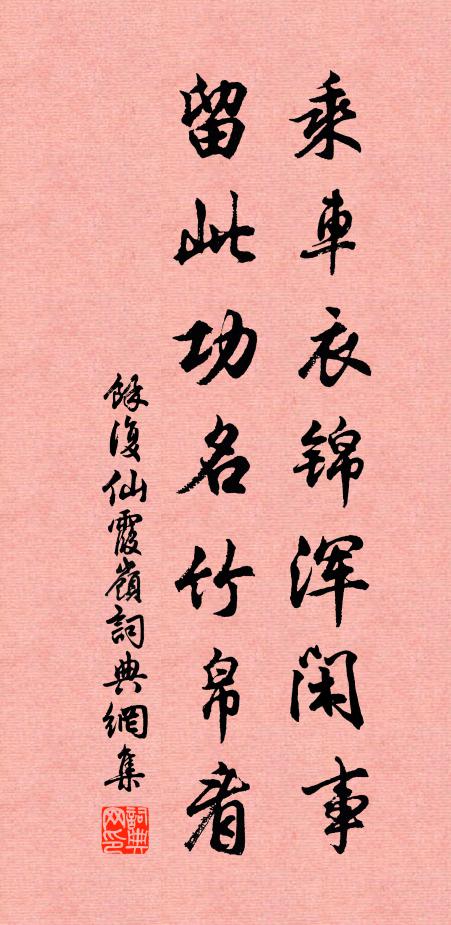 乘車衣锦浑閑事
留此功名竹帛看
餘復仙霞嶺詞典網集
詞典
网印